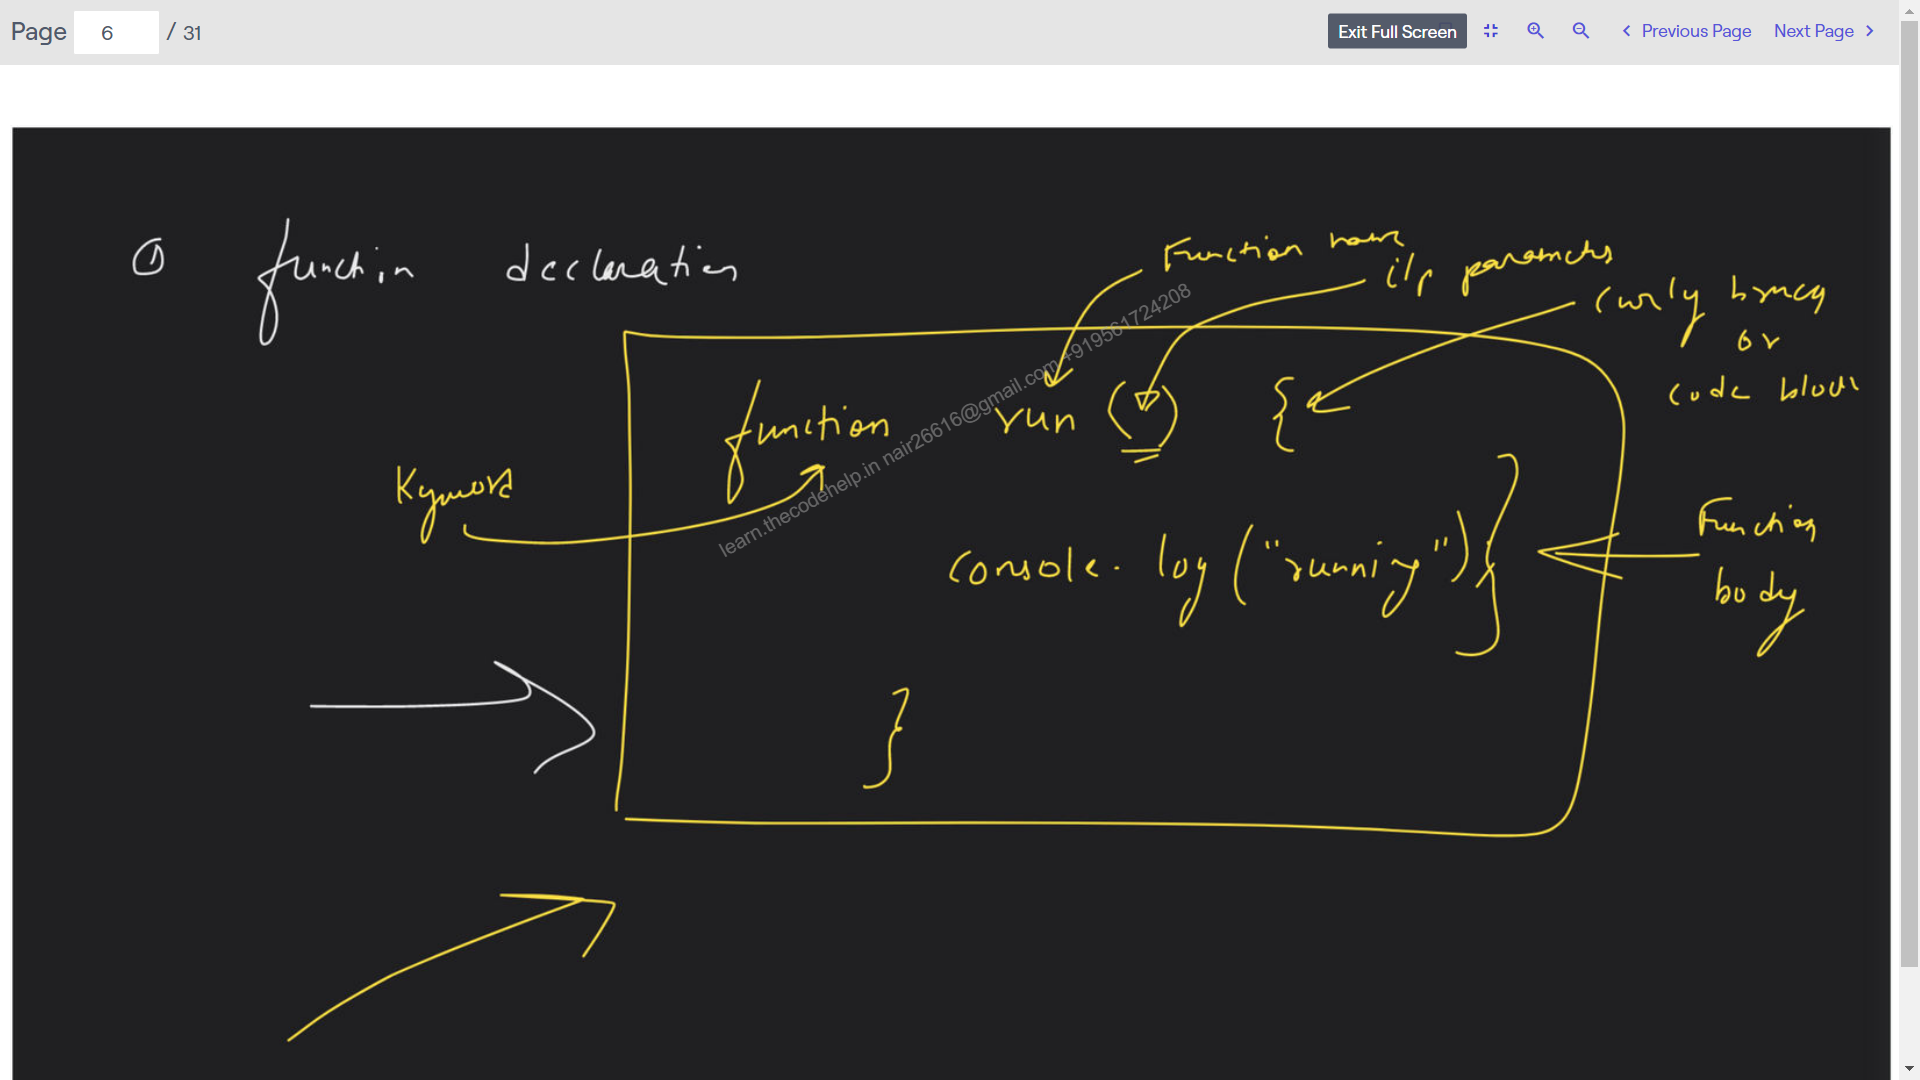 Page 6 / 31 Exit Full Screen Previous Page Next Page
① function declaration
Function name
i/p parameters
curly braces
or
code block
function run ( ) {
Keyword
console.log("running");
Function
body
}
learn.thecodehelp.in nair26616@gmail.com +919561724208